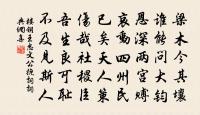 梁木今其壞
誰能問大鈞
恩深兩宮賻
哀動四州民
已矣天人策
傷哉社稷臣
吾生良可恥
不及見斯人
樓鑰王忠文公挽詞詞
典網